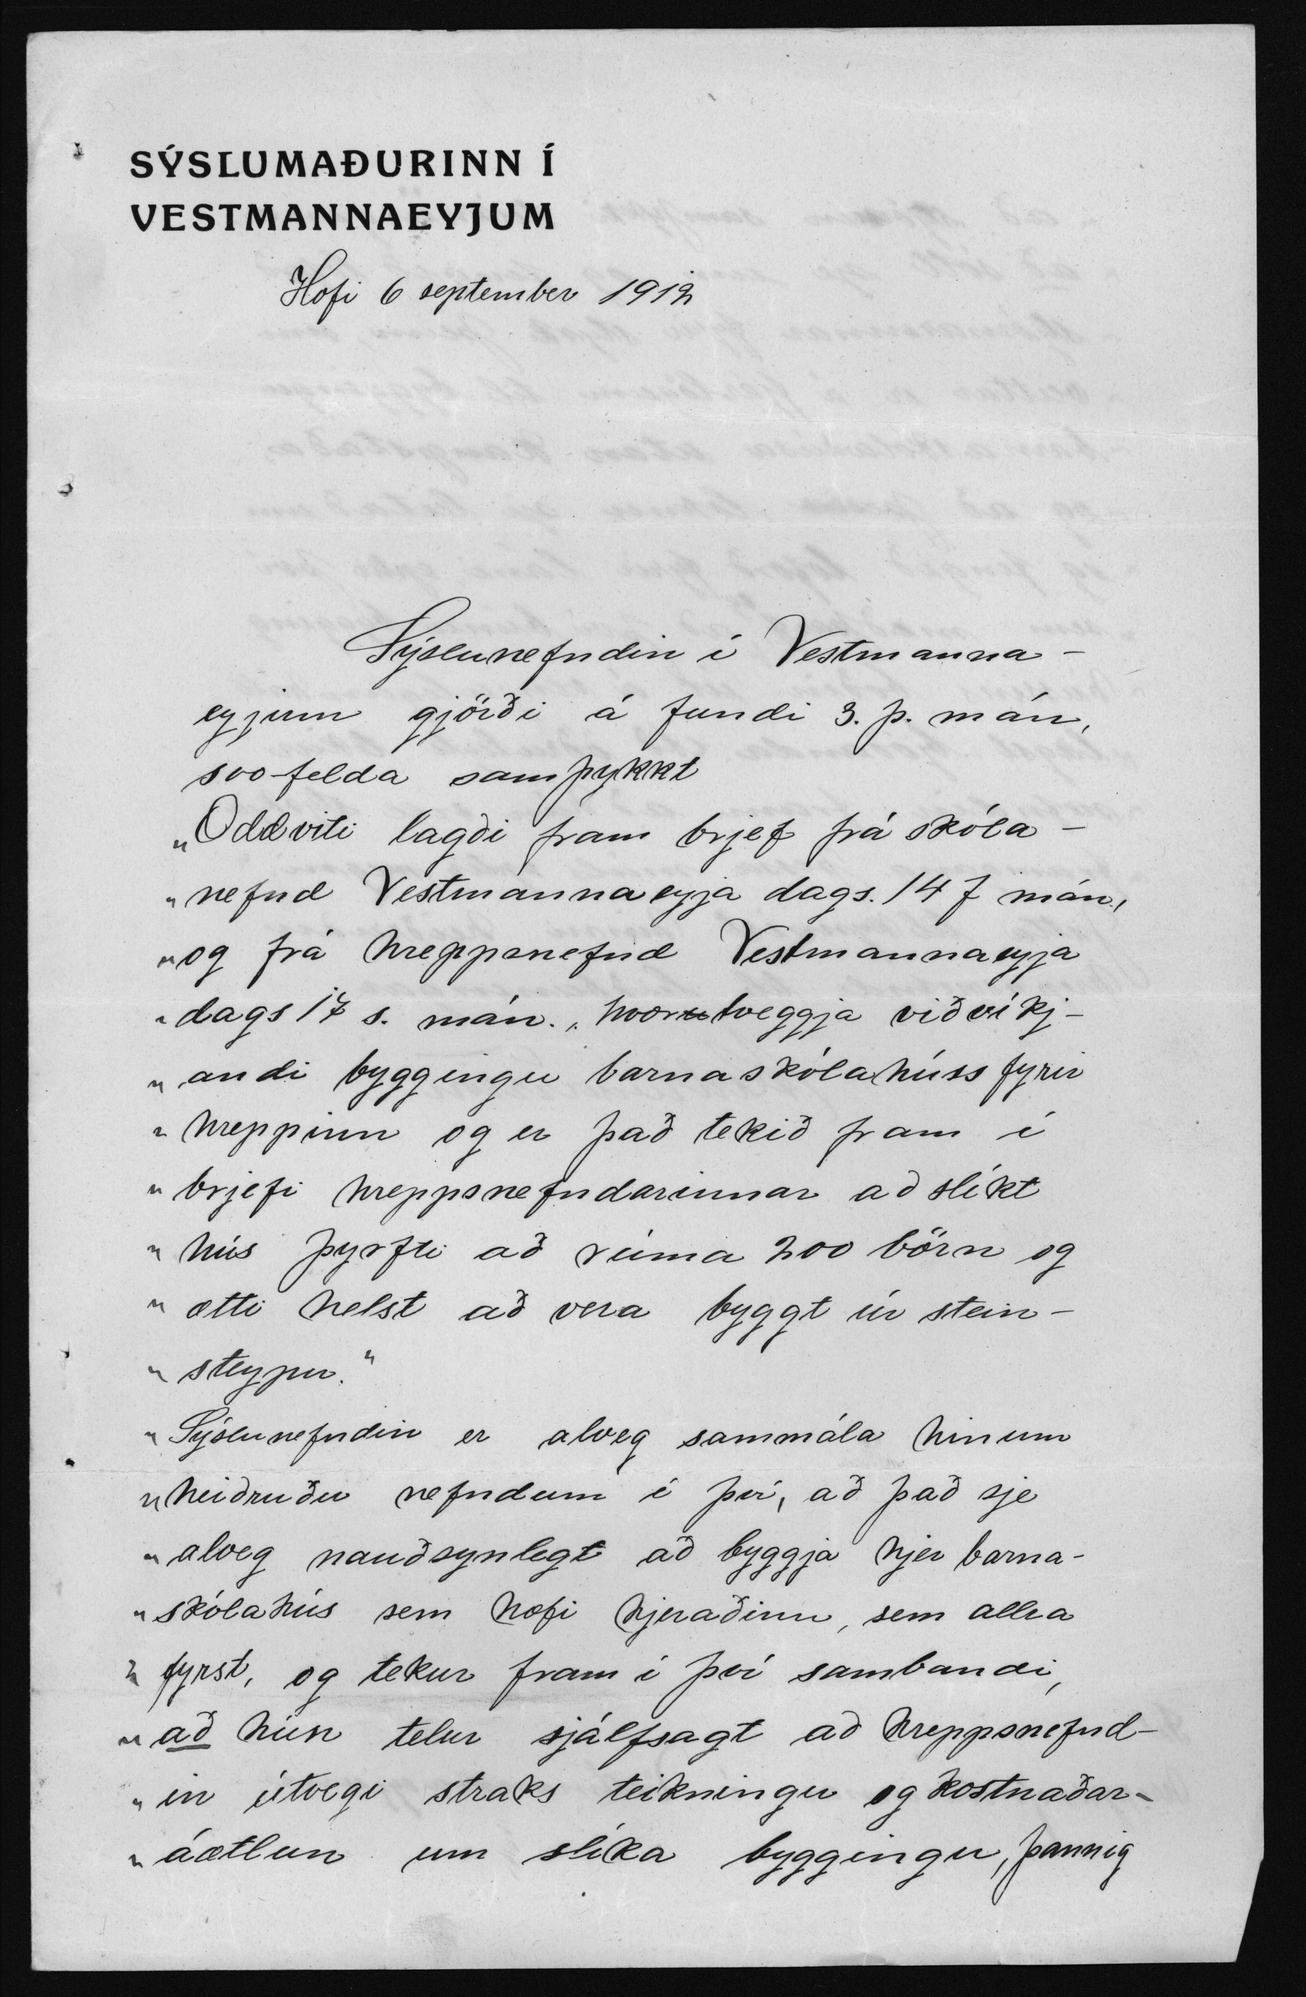 SÝSLUMAÐURINN Í
VESTMANNAEYJUM
Hofi 6 september 1912
Sýslunefndin í Vestmanna-
eyjum gjörði á fundi 3. þ. mán,
svo-felda samþykkt
„Oddviti lagði fram brjef frá skóla-
„nefnd Vestmannaeyja dags. 14 f mán,
„og frá hreppsnefnd Vestmannaeyja
„dags 17 s. mán., hvortveggja viðvíkj-
„andi byggingu barnaskólahúss fyrir
„hreppinn og er það tekið fram í
„brjefi hreppsnefndarinnar að slíkt
„hús þyrfti að rúma 200 börn og
„ætti helst að vera byggt úr stein-
„steypu."
„Sýslunefndin er alveg sammála hinum
„heiðruðu nefndum í því, að það sje
„alveg nauðsynlegt að byggja hjer barna-
„skólahús sem hæfi hjeraðinu, sem allra
„fyrst, og tekur fram í því sambandi,
„að hún telur sjálfsagt að hreppsnefnd-
„in útvegi straks teikningu og kostnaðar-
„áætlun um slíka byggingu, þannig